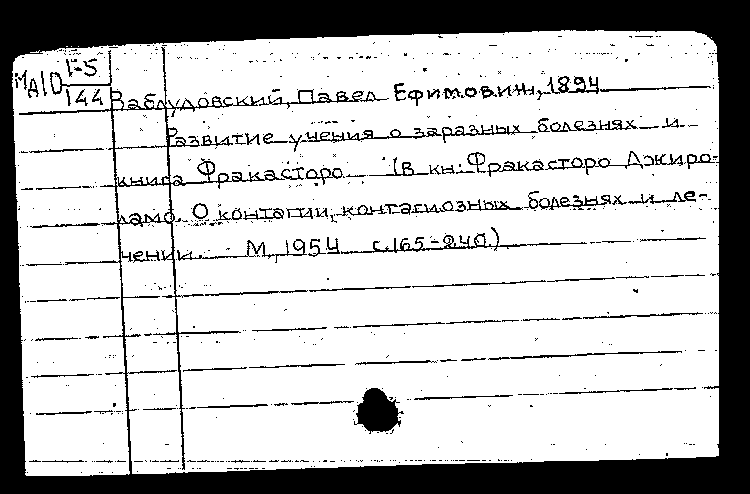 МА10 1-5
144
Заблудовский, Павел Ефимович, 1894
Развитие учения о заразных болезнях и
книга Фракасторо (В кн: Фракасторо Джиро-
ламо. О контагии, контагиозных болезнях и ле-
чении. М, 1954 с.165-240.)